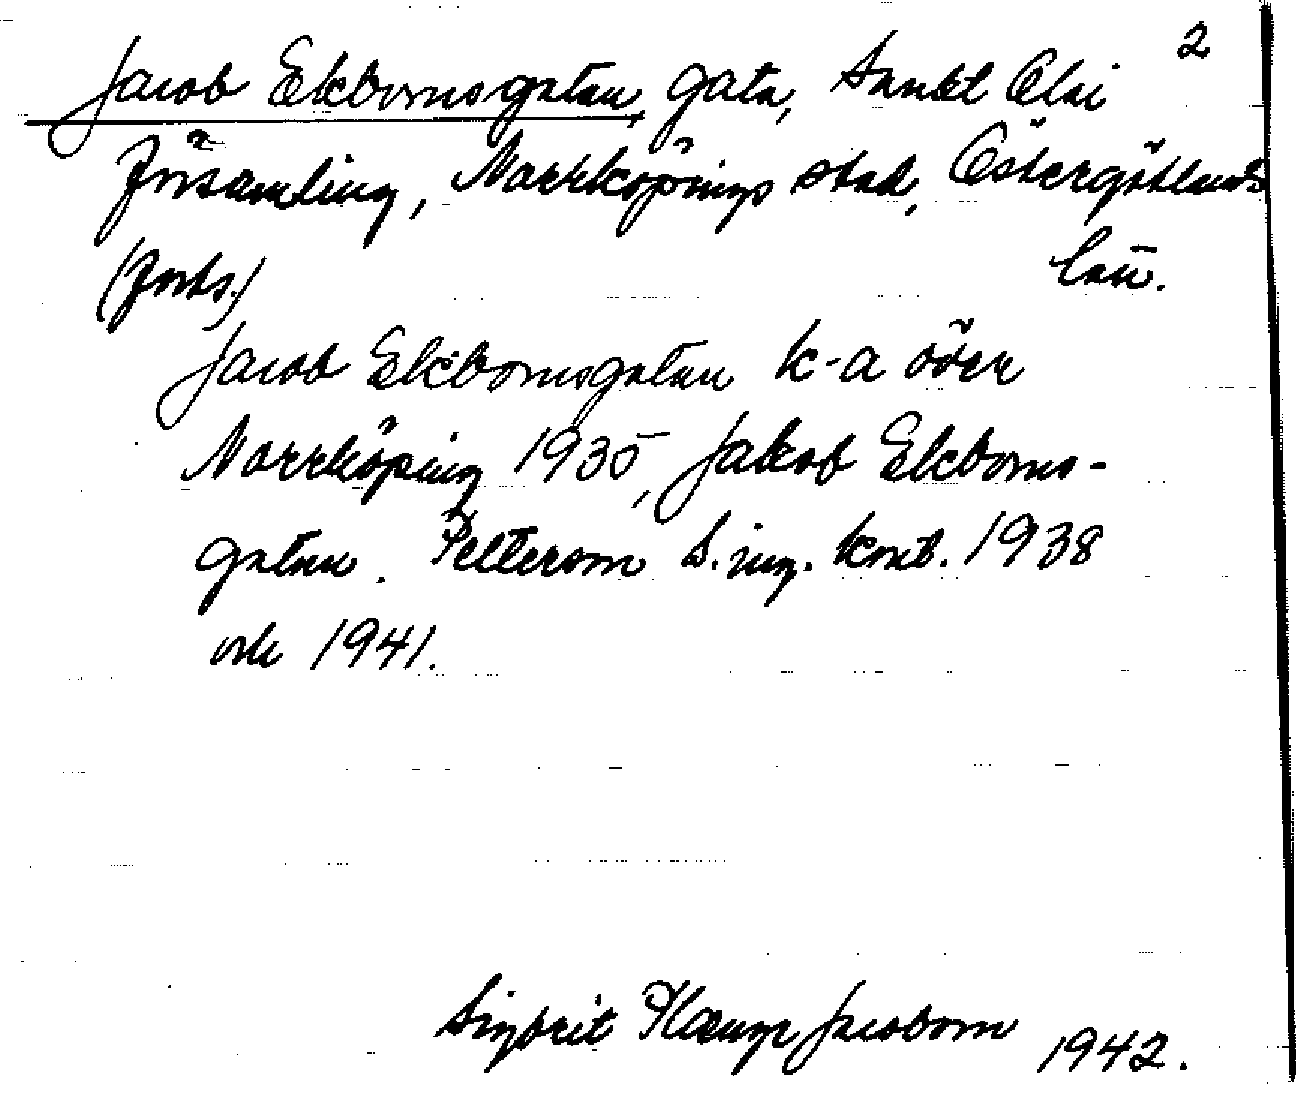 2
Jacob Ekbomsgatan, gata, Sankt Olai
församling, Norrköpings stad, Östergötlands
(forts.) län.
Jacob Ekbomsgatan k-a över
Norrköping 1935, Jakob Ekboms-
gatan. Petterson S. ing. kont. 1938
och 1941.
Sigbrit Plænge Jacobson 1942.